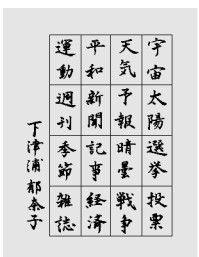 宇宙太陽選挙投票
天気予報晴曇戦争
平和新聞記事経済
運動週刊季節雑誌
下津浦郁奈子